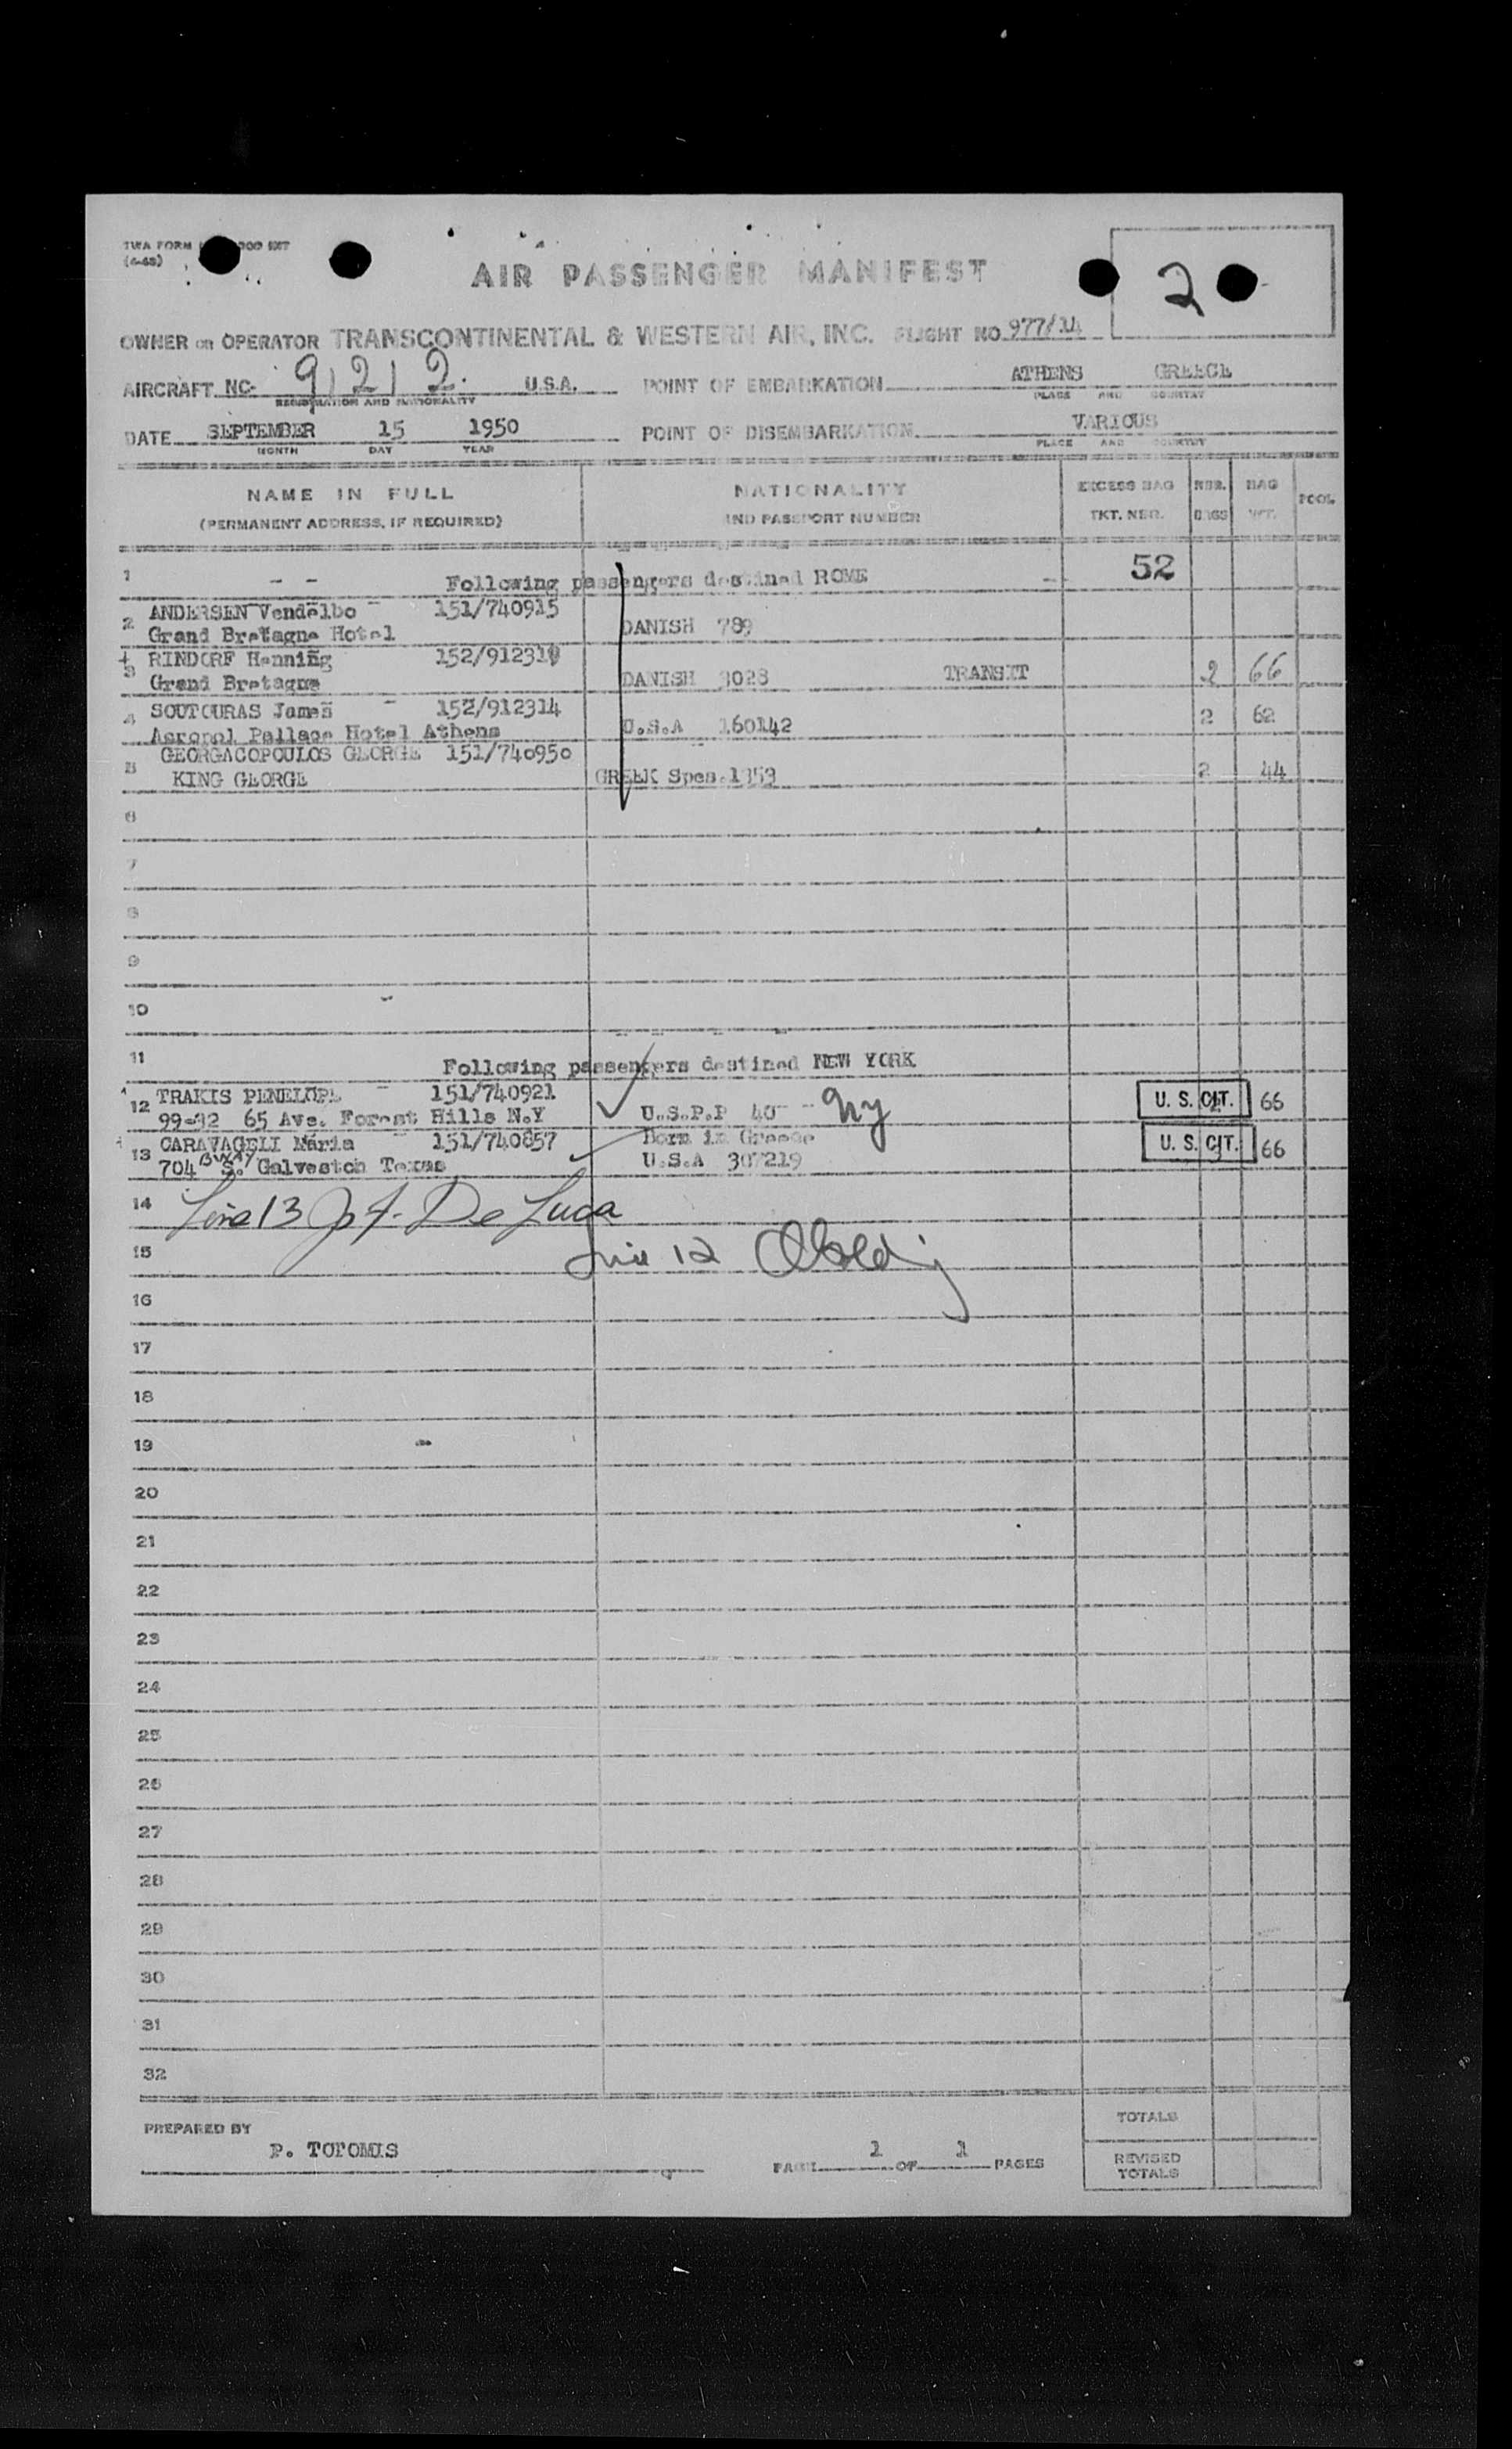 TWA FORM
(4-48)
AIR PASSENGER MANIFEST
2
OWNER OR OPERATOR TRANSCONTINENTAL & WESTERN AIR, INC. FLIGHT NO. 977/14
AIRCRAFT NC- 91212. U.S.A. POINT OF EMBARKATION ATHENS GREECE
REGISTRATION AND NATIONALITY PLACE AND COUNTRY
DATE SEPTEMBER 15 1950 POINT OF DISEMBARKATION VARIOUS
MONTH DAY YEAR PLACE AND COUNTRY
NAME IN FULL NATIONALITY EXCESS BAG NBR. BAG POOL
(PERMANENT ADDRESS, IF REQUIRED) AND PASSPORT NUMBER TKT. NBR. BAGS WT.
1 - - Following passengers destined ROME -- 52
2 ANDERSEN Vendelbo - 151/740915
Grand Bretagne Hotel DANISH 789
3 RINDORF Henning 152/912310
Grand Bretagne DANISH 3028 TRANSIT 2 66
4 SOUTOURAS James - 152/912314
Acropol Pallace Hotel Athens U.S.A 160142 2 62
5 GEORGACOPOULOS GEORGE 151/740950
KING GEORGE GREEK Spes.1353 2 44
6
7
8
9
10
11 Following passengers destined NEW YORK
12 TRAKIS PENELOPE - 151/740921
99-32 65 Ave. Forest Hills N.Y U.S.P.P 40 -- NY U. S. CIT. 66
13 CARAVAGELI Maria - 151/740857 Born in Greece
704 S. Galveston Texas U.S.A 307219 U. S. CIT. 66
14 Line 13 J. F. De Luca
15 Line 12
16
17
18
19
20
21
22
23
24
25
26
27
28
29
30
31
32
PREPARED BY TOTALS
P. TOTOMIS PAGE 1 OF 1 PAGES REVISED
TOTALS